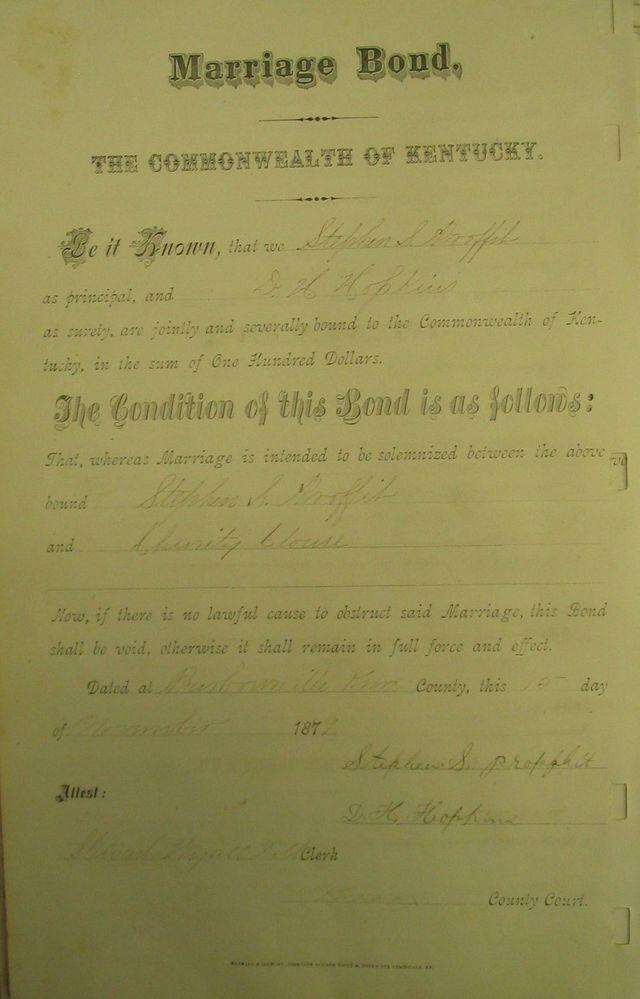 Marriage Bond.
THE COMMONWEALTH OF KENTUCKY.
Be it Known, that we Stephen S Proffit
as principal, and D. H Hopkins
as surety, are jointly and severally bound to the Commonwealth of Ken-
tucky, in the sum of One Hundred Dollars.
The Condition of this Bond is as follows:
That, whereas Marriage is intended to be solemnized between the above
ve
bound Stephen S. Proffit
and Charity Clouse
Now, if there is no lawful cause to obstruct said Marriage, this Bond
shall be void, otherwise it shall remain in full force and effect.
Dated at Barbourville Knox County, this 15 day
of November 187
Stephen S. Proffit
Attest:
D. H. Hopkins
Clerk
Knox County Court.